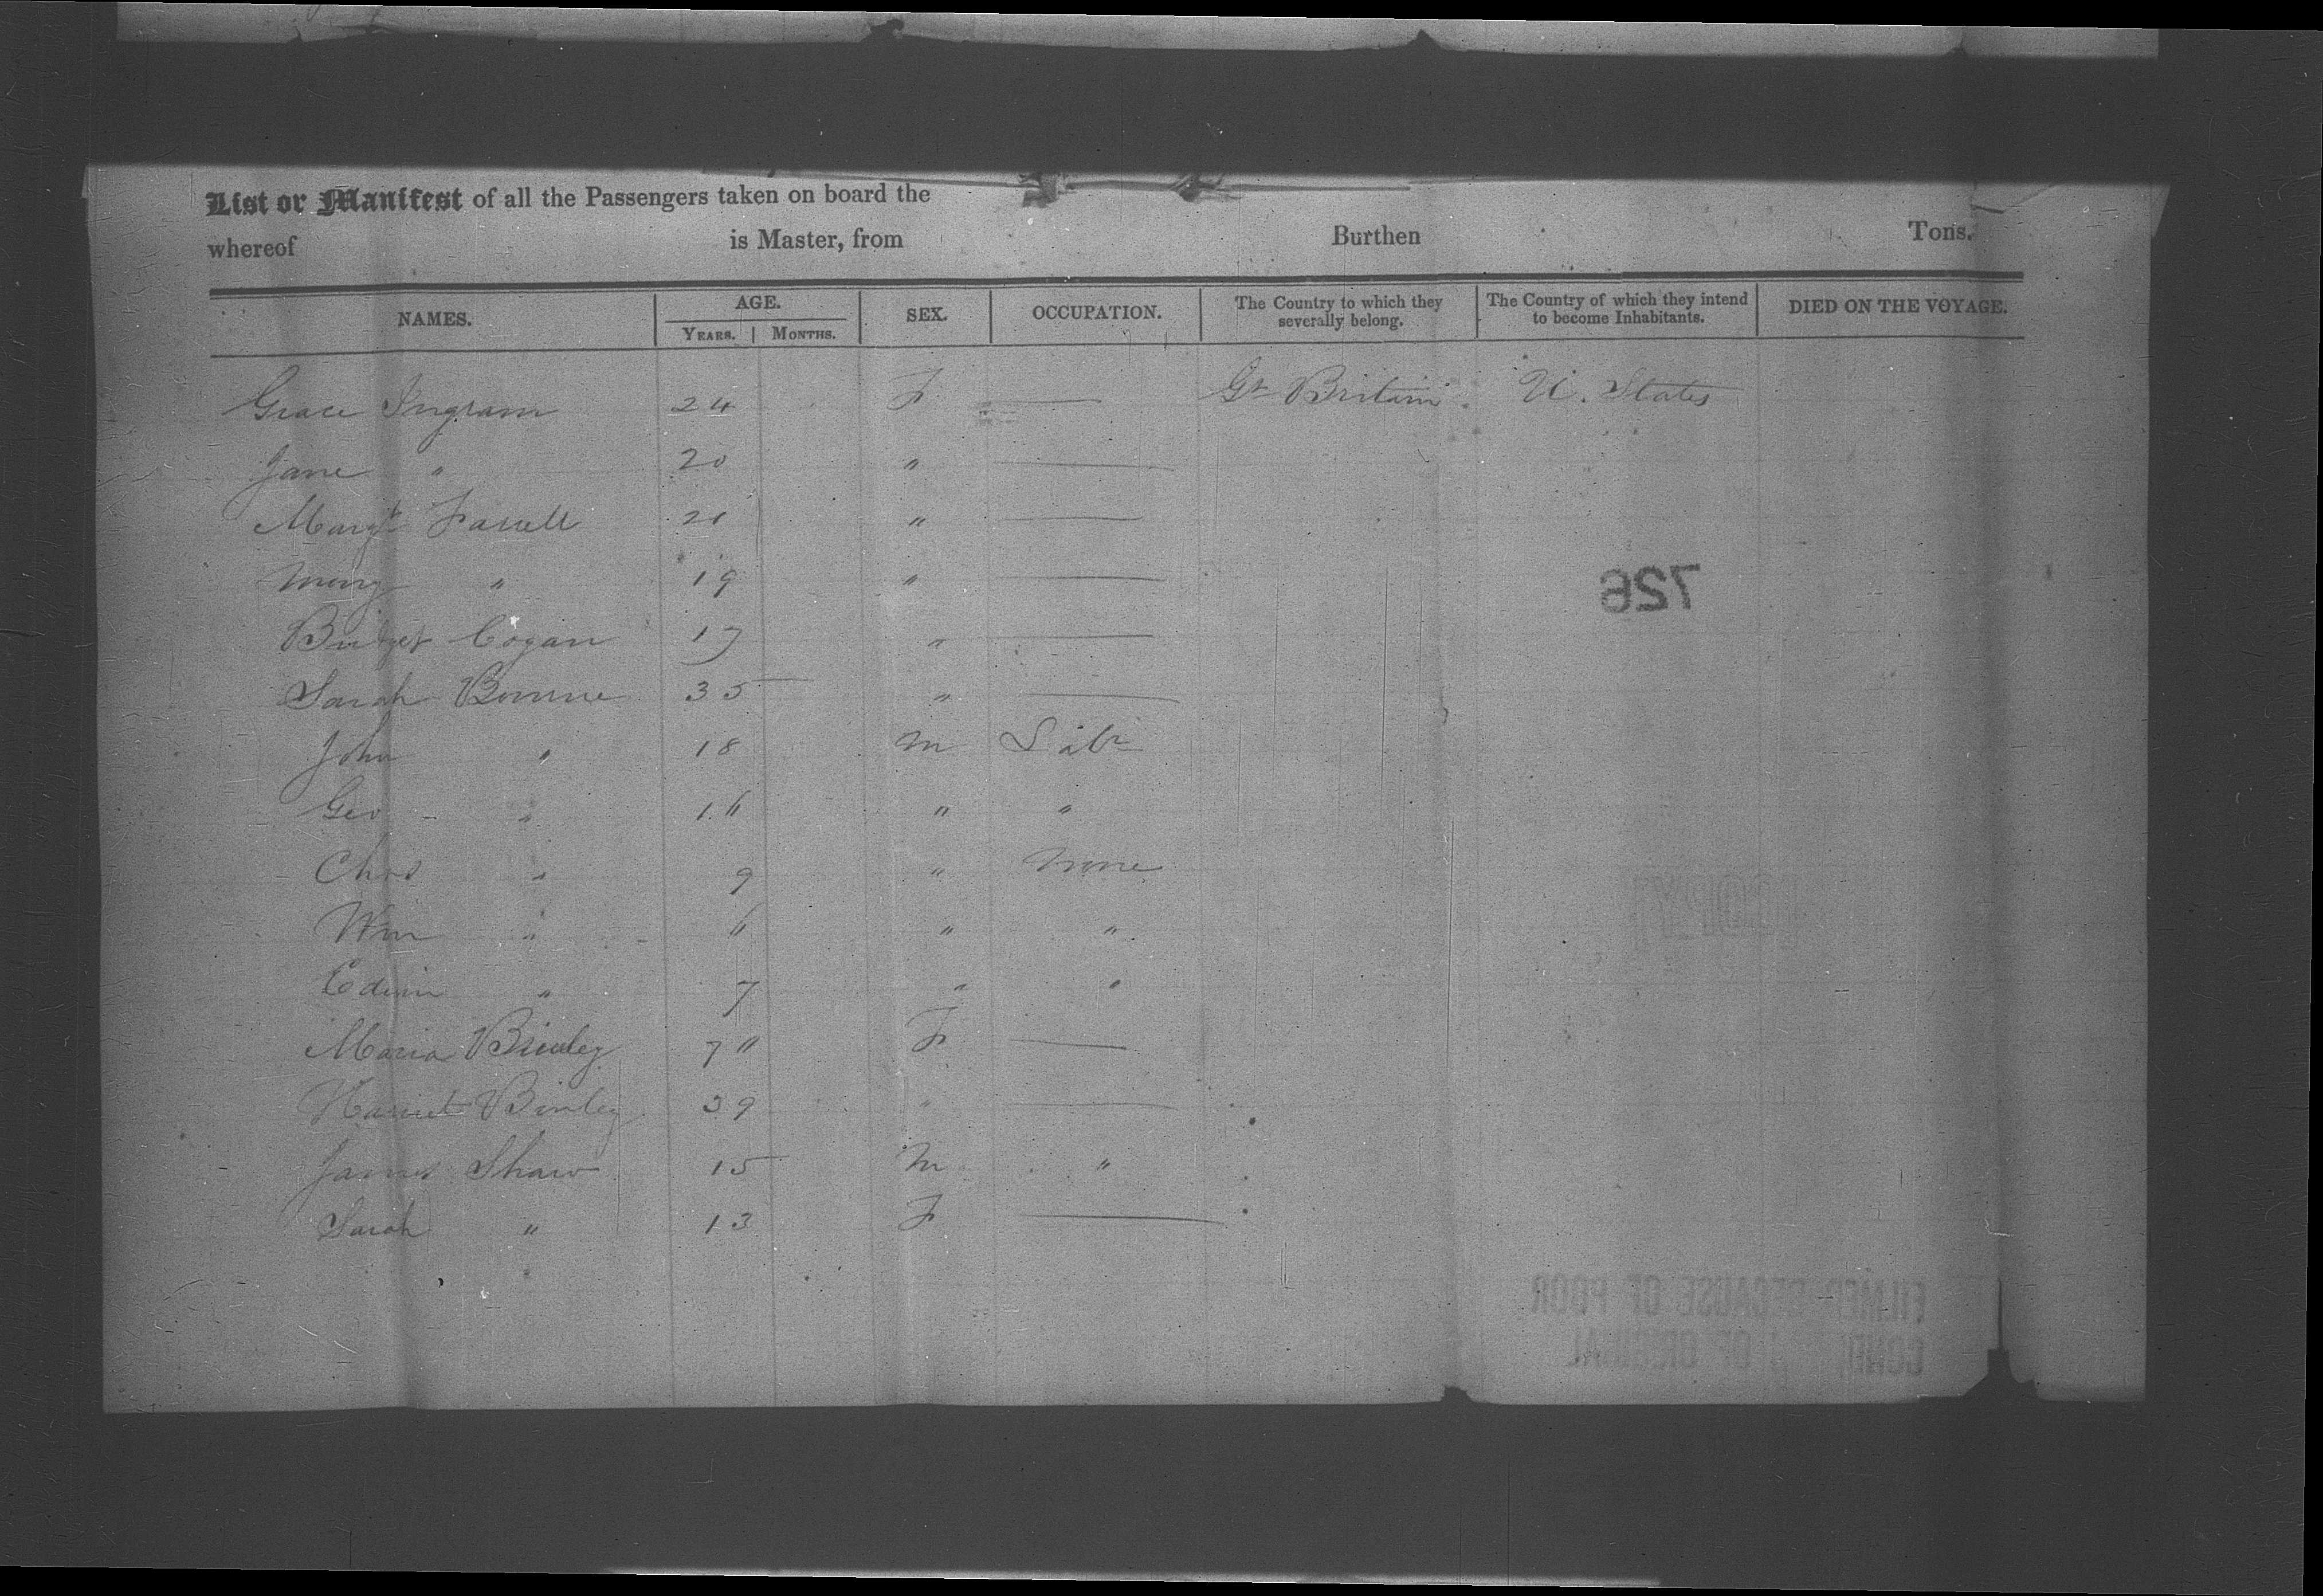 List or Manifest of all the Passengers taken on board the
whereof is Master, from Burthen Tons.
NAMES. AGE. YEARS. MONTHS. SEX. OCCUPATION. The Country to which they severally belong. The Country of which they intend to become Inhabitants. DIED ON THE VOYAGE.
Grace Ingram 24 F — Gt Britain U. States
Jane " 20 " —
Margt Farrell 20 " —
Mary " 19 " —
726
Bridget Cogan 17 " —
Sarah Bourne 35 " —
John " 18 M Labr
Geo " 16 " "
Chas " 9 " None
Wm " 6 " "
Edwin " 7 " "
COPY
Maria 7 " F —
Harriet Binley 39 " —
James Shaw 15 M "
Sarah " 13 F —
FILMED BECAUSE OF POOR
OF ORIGINAL